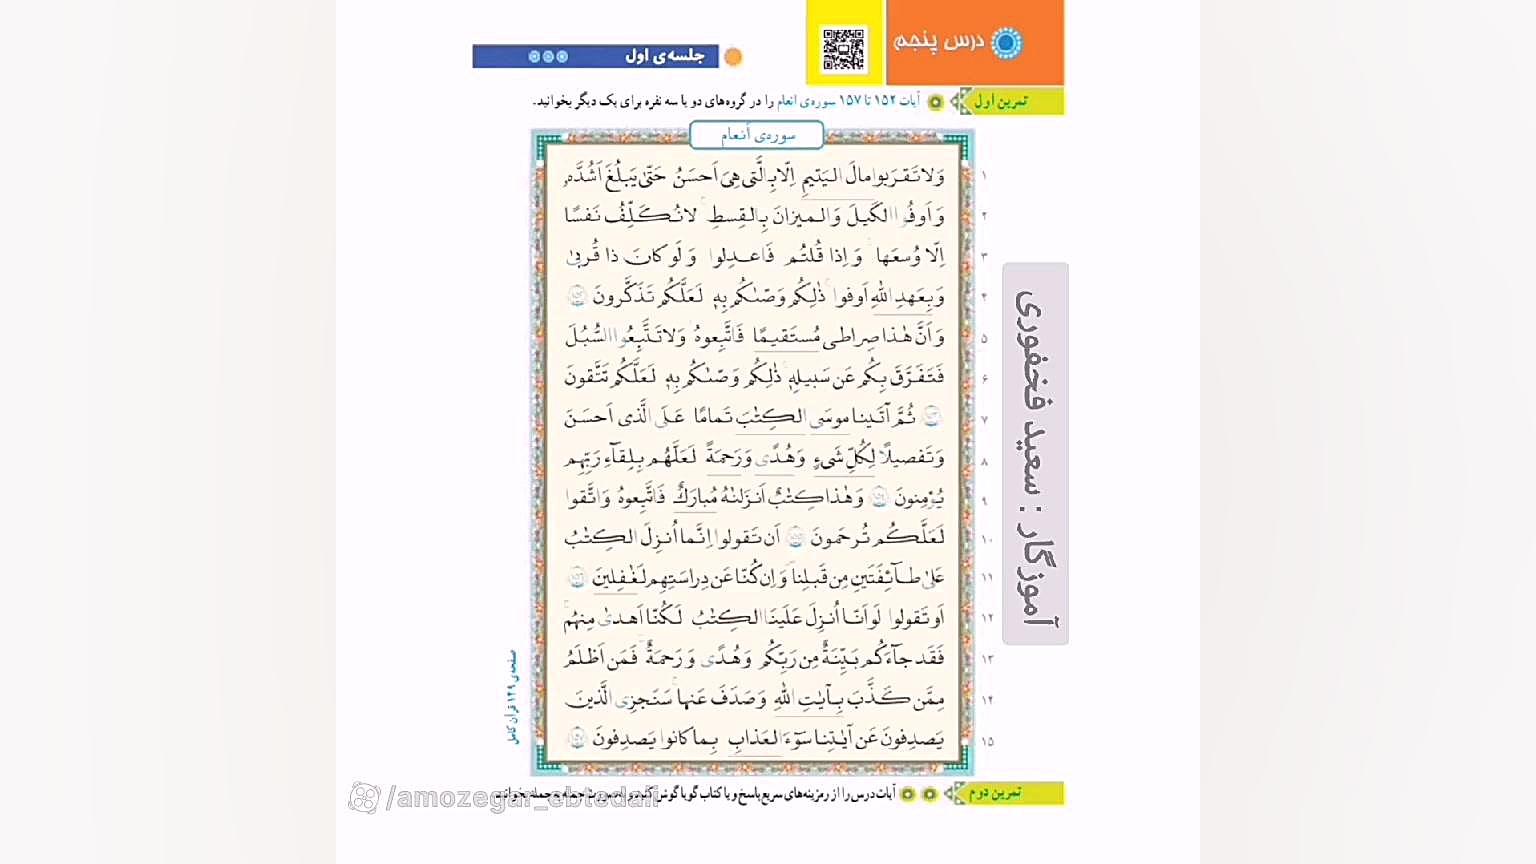 درس پنجم
جلسه‌ی اول
تمرین اول
آیات ۱۵۲ تا ۱۵۷ سوره‌ی انعام را در گروه‌های دو یا سه نفره برای یک دیگر بخوانید.
سوره‌ی أنعام
۱ وَلا تَقـرَبوا مالَ الیَتیمِ اِلّا بِالَّتی هِیَ اَحسَنُ حَتّیٰ یَبلُغَ اَشُدَّهٗ
۲ وَ اَوفُوا الکَیلَ وَ المیزانَ بِالقِسطِ ۚ لا نُکَلِّفُ نَفسًا
۳ اِلّا وُسعَها ۚ وَ اِذا قُلتُم فَاعدِلوا وَ لَو کانَ ذا قُربیٰ
۴ وَ بِعَهدِ اللهِ اَوفوا ۚ ذٰلِکُم وَصّىٰکُم بِهٖ لَعَلَّکُم تَذَکَّرونَ ۱۵۲
۵ وَ اَنَّ هٰذا صِراطی مُستَقیمًا فَاتَّبِعوهُ ۚ وَلا تَتَّبِعُوا السُّبُلَ
۶ فَتَفَرَّقَ بِکُم عَن سَبیلِهٖ ۚ ذٰلِکُم وَصّىٰکُم بِهٖ لَعَلَّکُم تَتَّقونَ
۷ ۱۵۳ ثُمَّ آتَینا موسَی الکِتٰبَ تَمامًا عَلَی الَّذی اَحسَنَ
۸ وَ تَفصیلًا لِکُلِّ شَیءٍ وَ هُدًی وَ رَحمَةً لَعَلَّهُم بِلِقآءِ رَبِّهِم
۹ یُؤمِنونَ ۱۵۴ وَ هٰذا کِتٰبٌ اَنزَلنٰهُ مُبارَکٌ فَاتَّبِعوهُ وَ اتَّقوا
۱۰ لَعَلَّکُم تُرحَمونَ ۱۵۵ اَن تَقولوا اِنَّما اُنزِلَ الکِتٰبُ
۱۱ عَلیٰ طآئِفَتَینِ مِن قَبلِنا وَ اِن کُنّا عَن دِراسَتِهِم لَغٰفِلینَ ۱۵۶
۱۲ اَو تَقولوا لَو اَنّا اُنزِلَ عَلَینَا الکِتٰبُ لَکُنّا اَهدیٰ مِنهُم ۚ
۱۳ فَقَد جآءَکُم بَیِّنَةٌ مِن رَبِّکُم وَ هُدًی وَ رَحمَةٌ ۚ فَمَن اَظلَمُ
۱۴ مِمَّن کَذَّبَ بِآیٰتِ اللهِ وَ صَدَفَ عَنها ۗ سَنَجزِی الَّذینَ
۱۵ یَصدِفونَ عَن آیٰتِنا سوٓءَ العَذابِ بِما کانوا یَصدِفونَ ۱۵۷
صفحه‌ی ۱۴۹ قرآن کامل
آموزگار : سعید فخفوری
تمرین دوم
آیات درس را از رمزینه‌های سریع پاسخ و یا کتاب گویا گوش کنید و به صورت جمله به جمله بخوانید.
/amozegar_ebtedaii